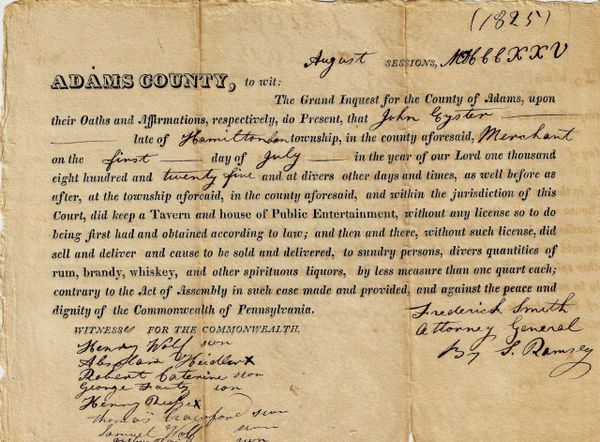 (1825)
August SESSIONS, MDCCCXXV
ADAMS COUNTY, to wit:
The Grand Inquest for the County of Adams, upon
their Oaths and Affirmations, respectively, do Present, that John Eyster
late of Hamiltonban township, in the county aforesaid, Merchant
on the first day of July in the year of our Lord one thousand
eight hundred and twenty five and at divers other days and times, as well before as
after, at the township aforesaid, in the county aforesaid, and within the jurisdiction of this
Court, did keep a Tavern and house of Public Entertainment, without any license so to do
being first had and obtained according to law; and then and there, without such license, did
sell and deliver and cause to be sold and delivered, to sundry persons, divers quantities of
rum, brandy, whiskey, and other spirituous liquors, by less measure than one quart each;
contrary to the Act of Assembly in such case made and provided, and against the peace and
dignity of the Commonwealth of Pennsylvania.
Frederick Smith
Attorney General
By S. Ramsey
WITNESSES FOR THE COMMONWEALTH.
Henry Wolf swn
Heidler x
Robert swn
George swn
Henry x
Thomas Crawford swn
Samuel Wolf swn